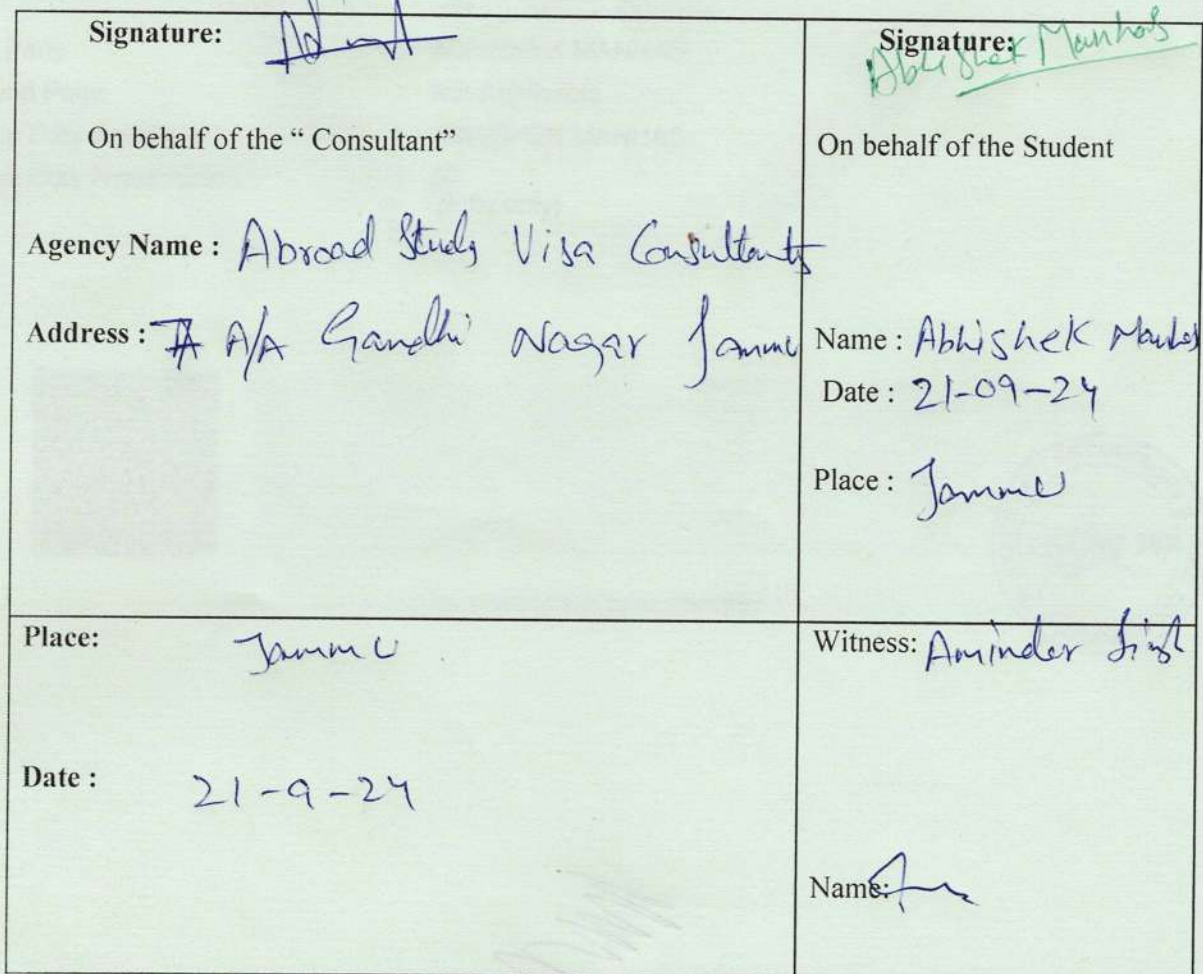 Signature:
On behalf of the “ Consultant”
Agency Name : Abroad Study Visa Consultants
Address : A/A Gandhi Nagar Jammu
Signature: Abhishek Manhas
On behalf of the Student
Name : Abhishek Manhas
Date : 21-09-24
Place : Jammu
Place: Jammu
Date : 21-9-24
Witness: Aminder Singh
Name: